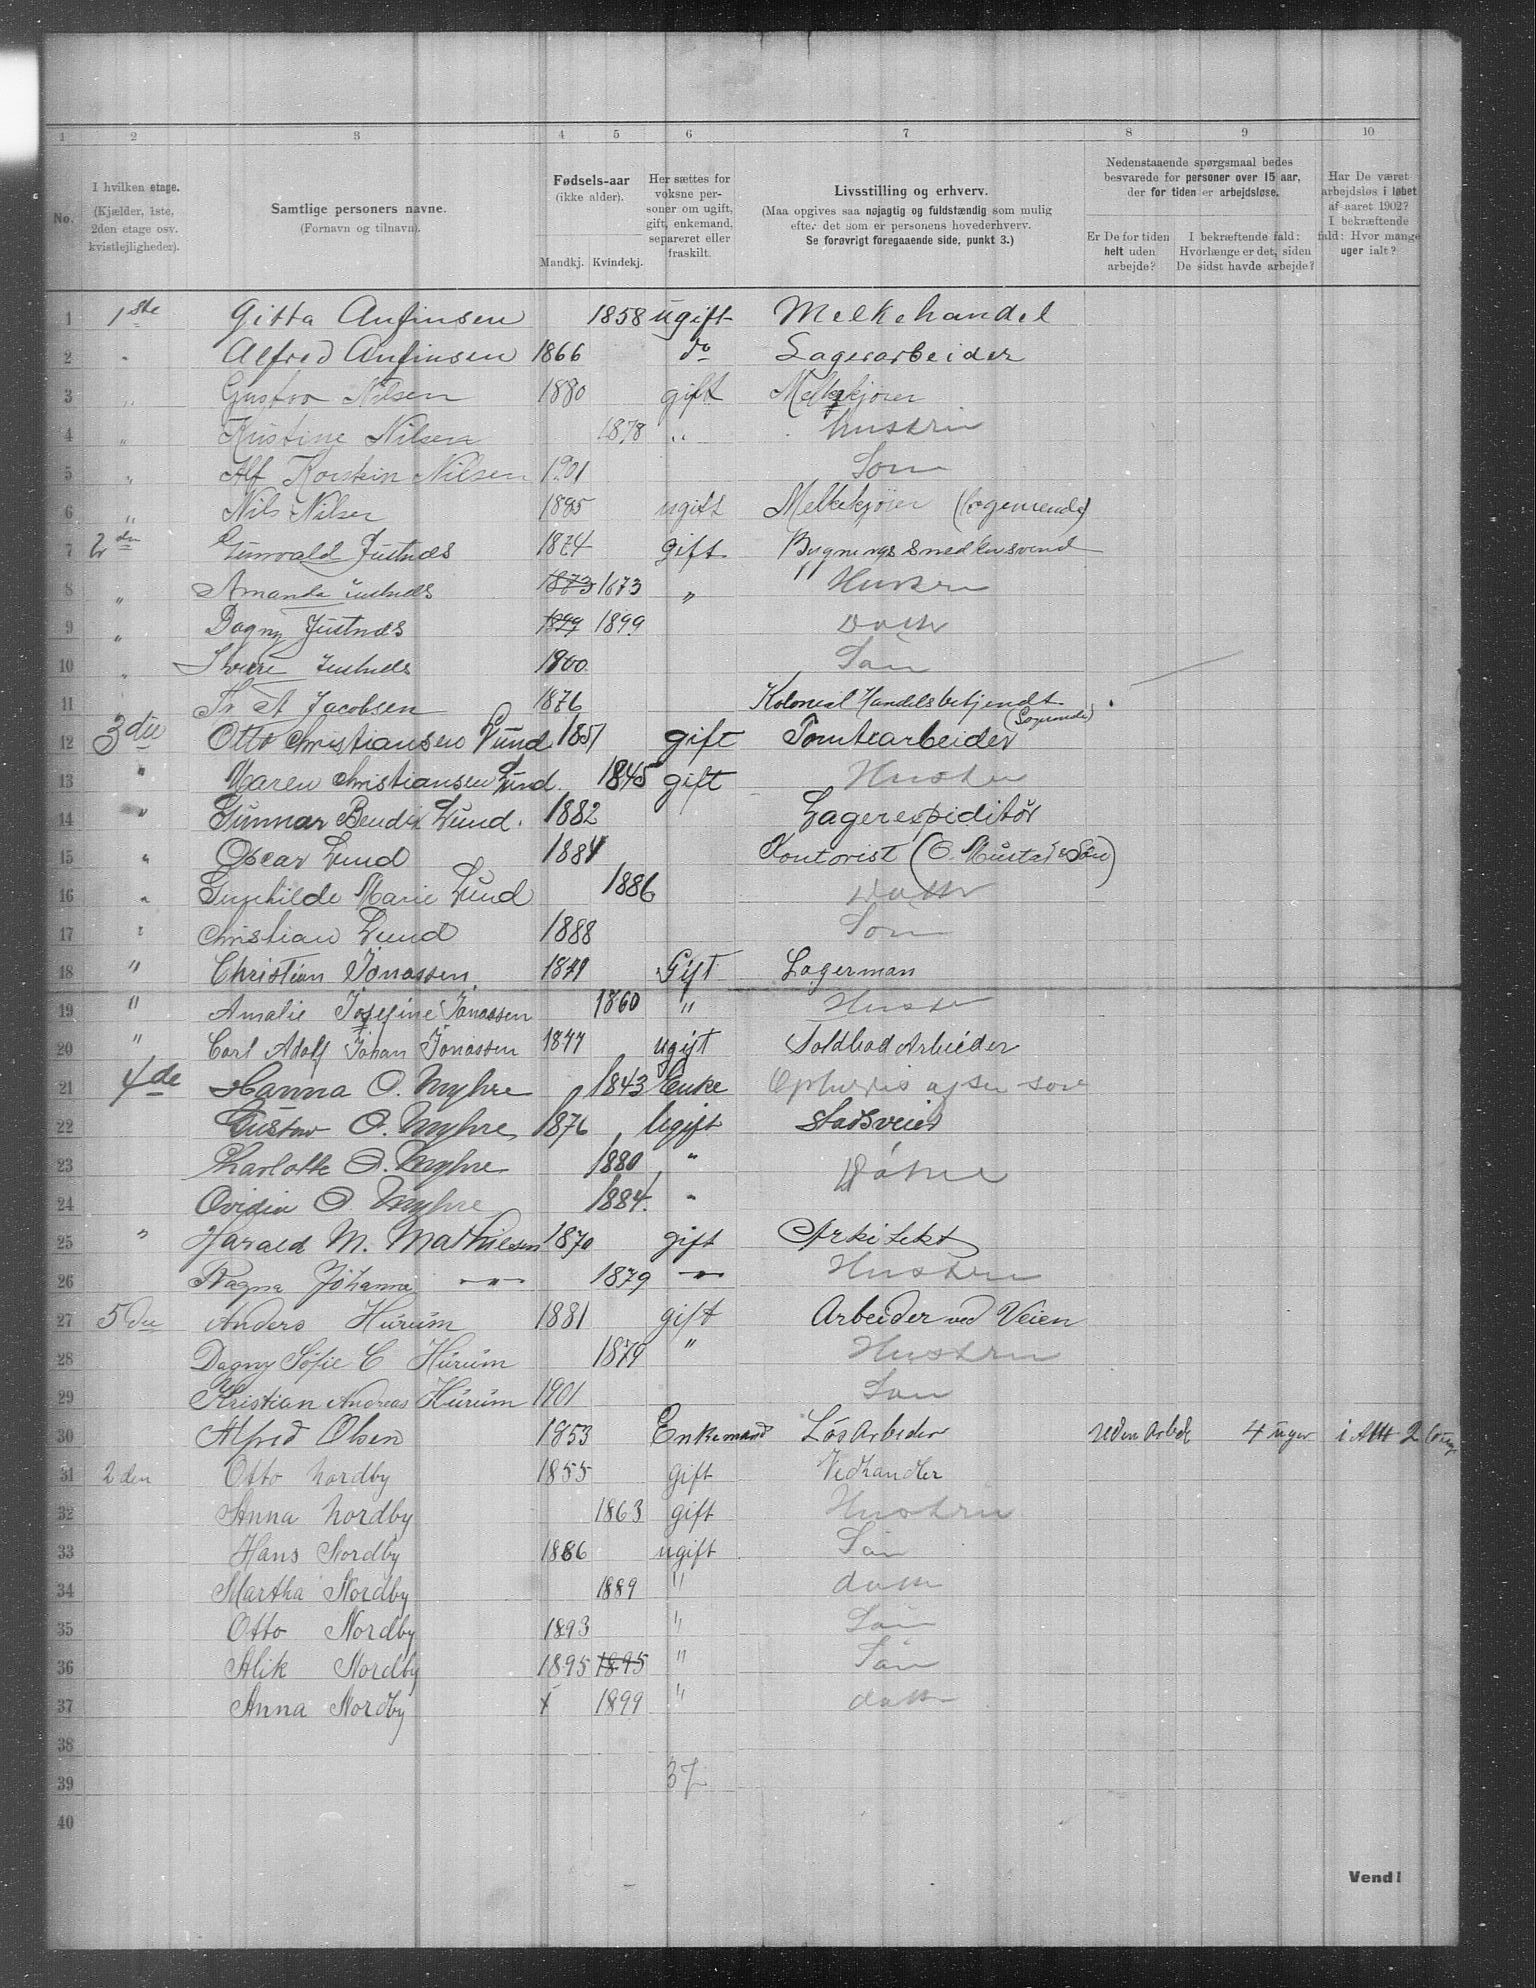 1 2 3 4 5 6 7 8 9 10
No.
I hvilken etage.
(Kjælder, 1ste,
2den etage osv.
kvistlejligheder).
Samtlige personers navne.
(Fornavn og tilnavn).
Fødsels-aar
(ikke alder).
Mandkj. Kvindekj.
Her sættes for
voksne per-
soner om ugift,
gift, enkemand,
separeret eller
fraskilt.
Livsstilling og erhverv.
(Maa opgives saa nøjagtig og fuldstændig som mulig
efter det som er personens hovederhverv.
Se forøvrigt foregaaende side, punkt 3.)
Nedenstaaende spørgsmaal bedes
besvarede for personer over 15 aar,
der for tiden er arbejdsløse.
Er De for tiden
helt uden
arbejde?
I bekræftende fald:
Hvorlænge er det, siden
De sidst havde arbejde?
Har De været
arbejdsløs i løbet
af aaret 1902?
I bekræftende
fald: Hvor mange
uger ialt?
1 1ste Gitta Anfinsen 1858 ugift Melkehandel
2 " Alfred Anfinsen 1866 do Lagerarbeider
3 " Gustav Nilsen 1880 gift Melkekjører
4 " Kristine Nilsen 1878 " Hustru
5 " Alf Torstein Nilsen 1901 Søn
6 " Nils Nilsen 1885 ugift Melkekjører (logerende)
7 2den Gunvald Justnæs 1874 gift Bygningssnedkersvend
8 " Amanda Justnæs 1873 1873 " Hustru
9 " Dagny Justnæs 1899 1899 Datter
10 " Sverre Justnæs 1900 Søn
11 Fr A Jacobsen 1876 Kolonial Handelsbetjendt
(Logerende)
12 3die Otto Christiansen Lund 1851 gift Tomtearbeider
13 " Maren Christiansen Lund 1845 gift Hustru
14 " Gunnar Bendix Lund. 1882 Lagerexpiditør
15 " Oscar Lund 1884 Kontorist (O. Mustad & Søn)
16 " Gunhilde Marie Lund 1886 Datter
17 " Christian Lund 1888 Søn
18 " Christian Jonassen 1849 Gift Lagerman
19 " Amalie Josefine Jonassen 1860 " Hustr
20 " Carl Adolf Johan Jonassen 1877 ugift Toldbod Arbeider
21 4de Hanna O. Myhre 1843 Enke Ophold af sen søn
22 Gustav O. Myhre 1876 Ugift
23 Charlotte O. Myhre 1880 " Døtre
24 Ovidia O. Myhre 1884. "
25 " Harald M. Mathiesen 1870 gift Arkitekt
26 Ragna Johanna —"— 1879 —"— Hustru
27 5de Anders Hurum 1881 gift Arbeider ved Veien
28 Dagny Sofie C Hurum 1879 " Hustru
29 Kristian Andreas Hurum 1901 Søn
30 Alfred Olsen 1853 Enkemand Løs Arbeder uden Arbede 4 uger i Alt 2
31 2den Otto Nordby 1855 gift Vedhandler
32 Anna Nordby 1863 gift Hustru
33 Hans Nordby 1886 ugift Søn
34 Martha Nordby 1889 " datter
35 Otto Nordby 1893 " Søn
36 Alik Nordby 1895 1895 " Søn
37 Anna Nordby x 1899 " datter
38
39 37
40
Vend!